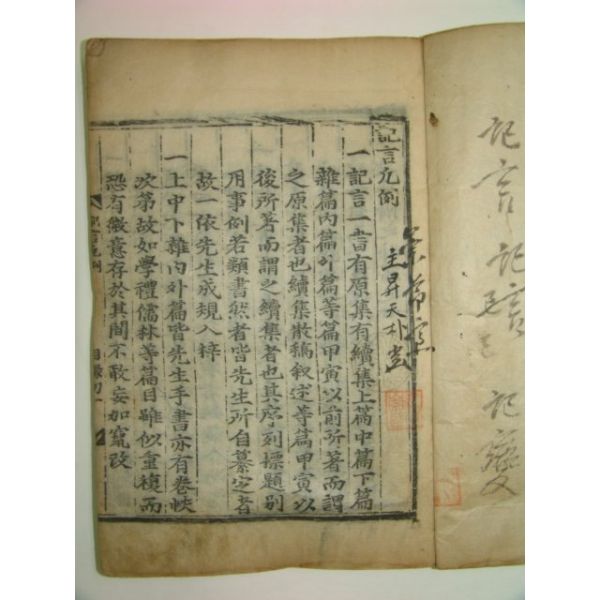 記言
記言
記變
記言凡例
一記言一書有原集有續集上篇中篇下篇
雜篇內篇外篇等篇甲寅以前所著而謂
之原集者也續集散稿叙述等篇甲寅以
後所著而謂之續集者也其序列標題別
用事例若類書然者皆先生所自纂定者
故一依先生成規入梓
一上中下雜內外篇皆先生手書亦有卷帙
次第故如學禮儒林等篇目雖似重複而
恐有微意存於其間不敢妄加竄改
記言凡例